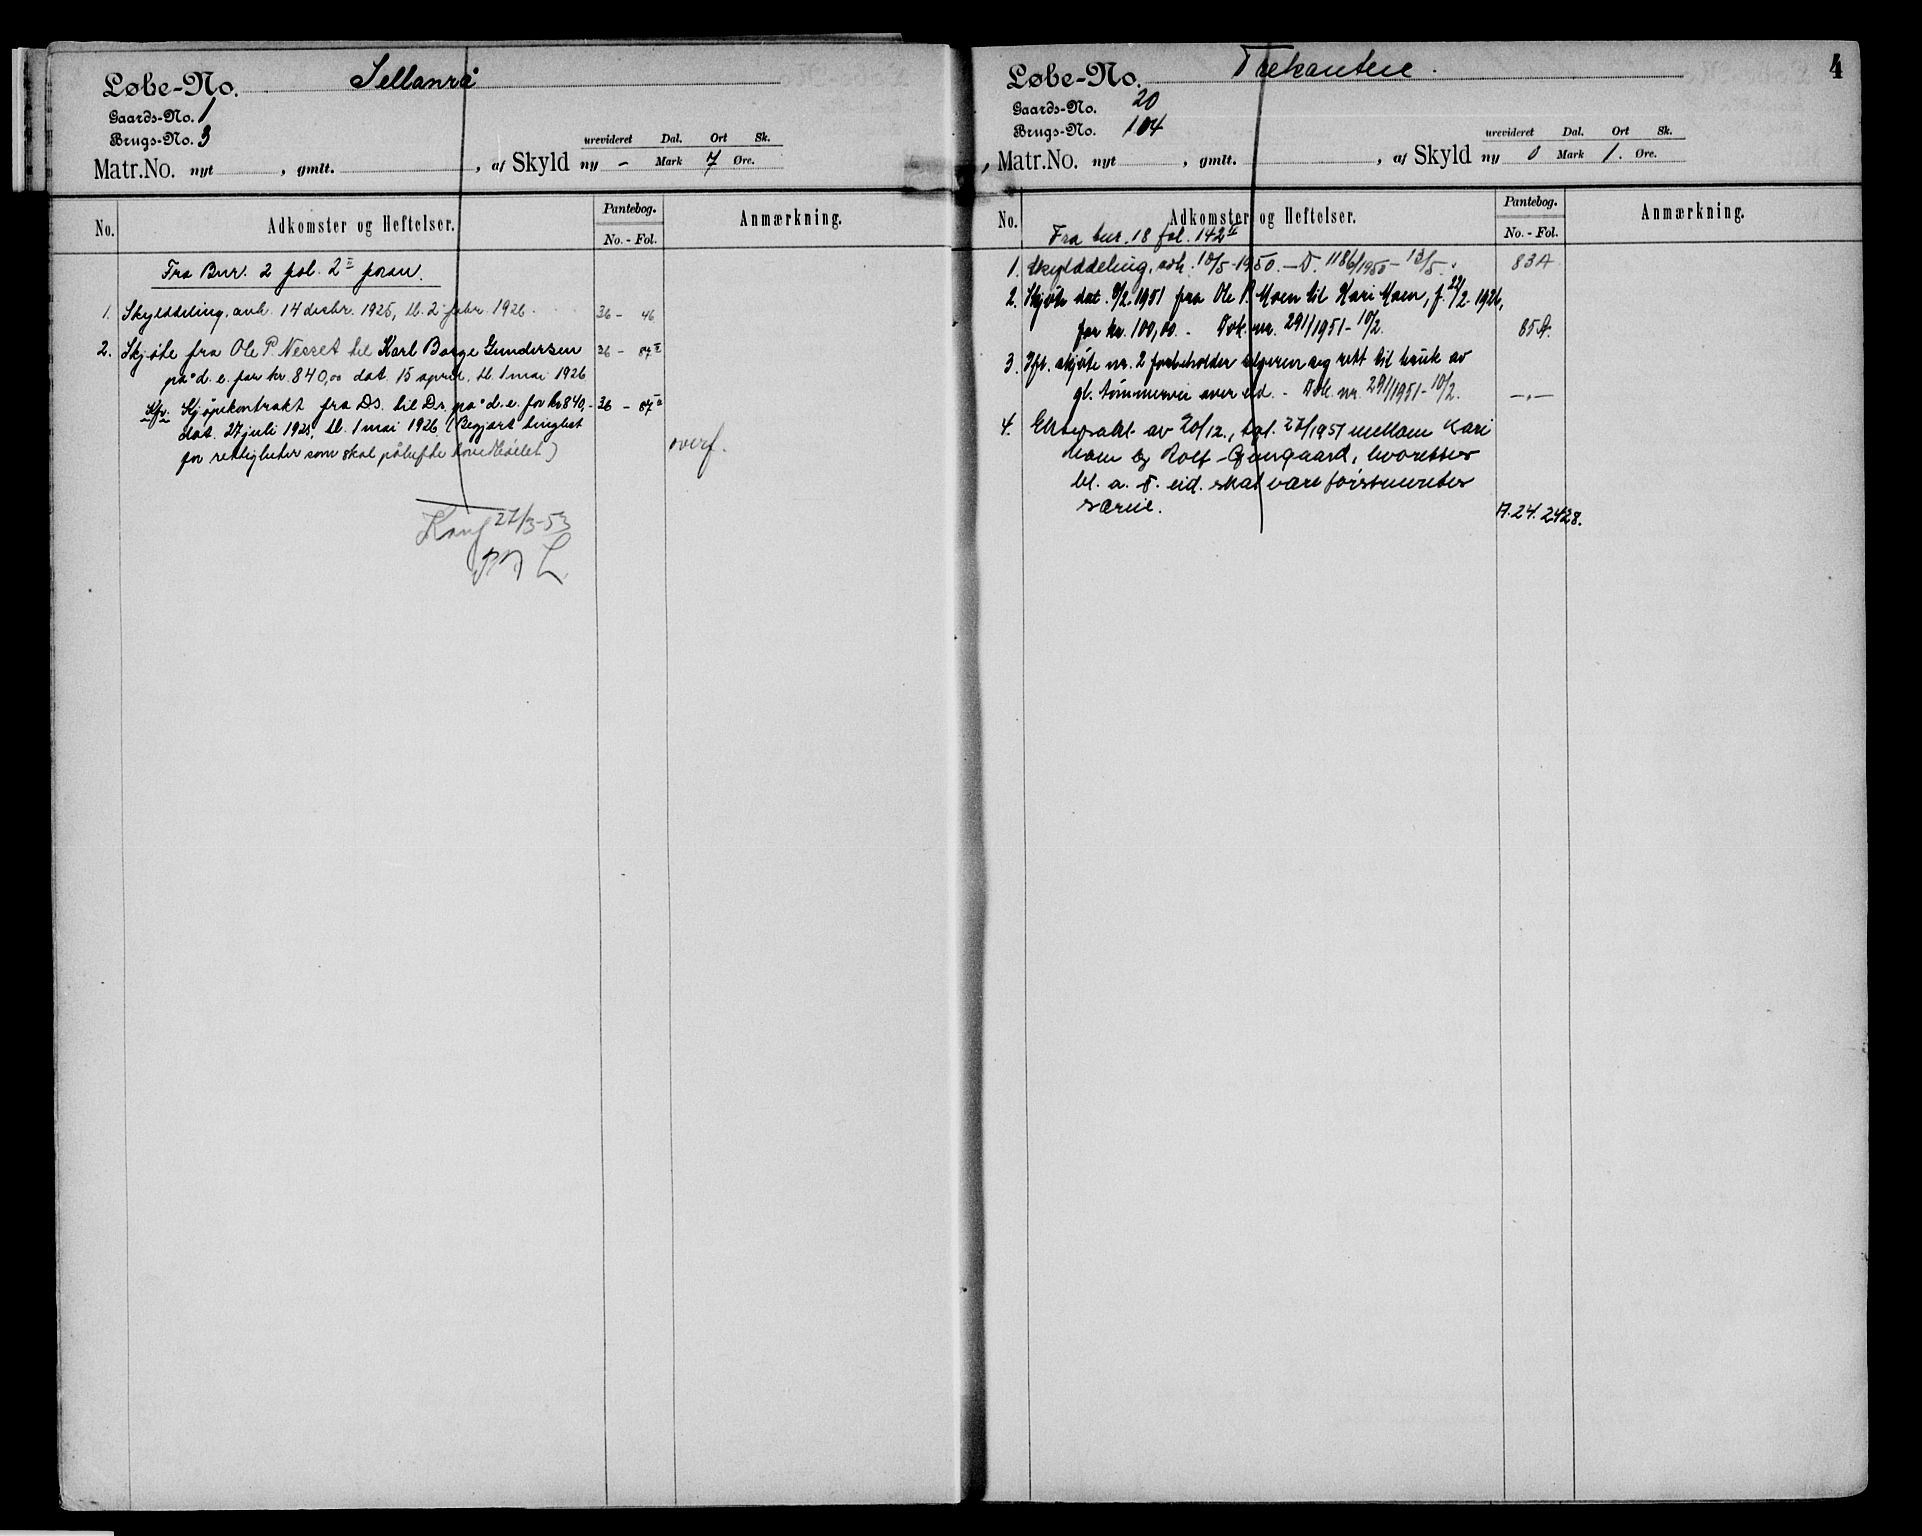 Løbe-No. Sellanrå
Gaards-No. 1
Brugs-No. 3
urevideret Dal. Ort Sk.
Matr.No. nyt , gmlt. , af Skyld ny - Mark 7 Øre.
No. Adkomster og Heftelser. Pantebog. No. - Fol. Anmærkning.
Fra Bnr. 2 fol. 2 II foran.
1. Skylddeling, avh. 14 desbr. 1925, tl. 2 febr. 1926. 36 - 46
2. Skjøte fra Ole P. Nesset til Karl Borge Gundersen 36 - 87 II
på d. e. for kr 840,00 dat. 15 april, tl. 1 mai 1926
Kfr. Kjøpekontrakt fra Ds. til Ds. på d. e. for kr 840,- 36 - 87 II
dat. 27 juli 1925, tl. 1 mai 1926. (Begjært tinglest
for rettigheter som skal påhefte )
overf.
Konf 27/3-53
4
Løbe-No. Trekanten.
Gaards-No. 20
Brugs-No. 104
urevideret Dal. Ort Sk.
Matr.No. nyt , gmlt. , af Skyld ny 0 Mark 1. Øre.
No. Adkomster og Heftelser. Pantebog. No. - Fol. Anmærkning.
Fra bnr. 18 fol. 142 II
1. Skylddeling, avh. 10/5-1950. - D. 1186/1950 - 13/5. 83A
2. Skjøte dat. 9/2.1951 fra Ole P. Moen til Kari Moen, f. 22/2.1926,
for kr. 100,00. - Dok. nr. 291/1951 - 10/2. 85A.
3. Iflt. skjøte nr. 2 forbeholder selgeren seg rett til bruk av
gl. tømmervei over eid. - Dok. nr. 291/1951 - 10/2. -"-
4. Ektepakt av 20/12., tgl. 27/1951 mellom Kari
Moen og Rolf , hvoretter
bl. a. d. eid. skal være førstnevntes
særeie. A. 24. 2428.